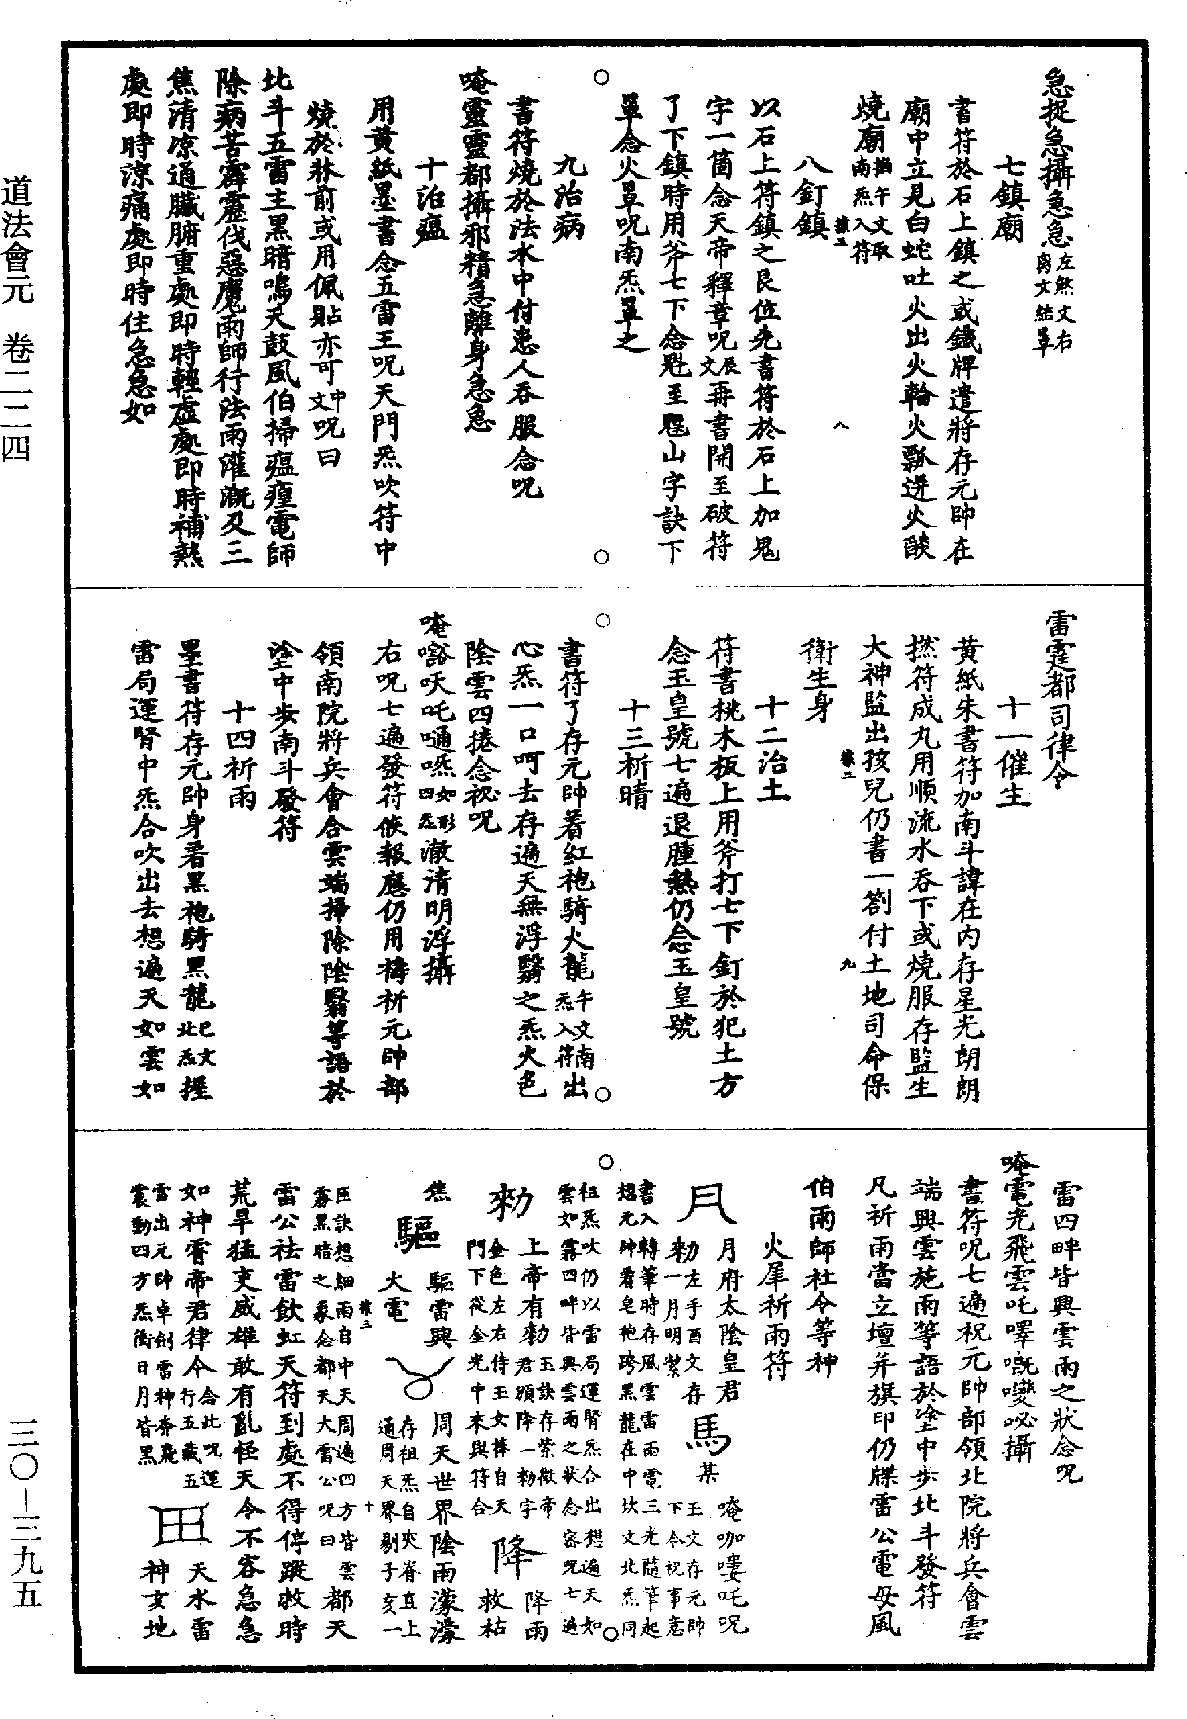 道法會元　卷二二四
三〇―三九五
急捉急攝急急左煞文右雷文結罩
七鎮廟
書符於石上鎮之或鐵牌遣將存元帥在
廟中立見白蛇吐火出火輪火瓢迸火酸
燒廟掐午文取南炁入符
八釘鎮
以石上符鎮之艮位先書符於石上加鬼
字一箇念天帝釋章呪辰文再書開至破符
了下鎮時用斧七下念魁至魒山字訣下
單念火單呪南炁罩之
九治病
書符燒於法水中付患人吞服念呪
唵靈靈都攝邪精急離身急急
十治瘟
用黃紙墨書念五雷王呪天門炁吹符中
燒於牀前或用佩貼亦可中文呪曰
北斗五雷主黑暗鳴天鼓風伯掃瘟㾮電師
除病苦霹靂伐惡魔雨師行法雨灌溉及三
焦清涼通臟腑重處即時輕虛處即時補熱
處即時涼痛處即時住急急如
雷霆都司律令
十一催生
黃紙朱書符加南斗諱在内存星光朗朗
撚符成丸用順流水吞下或燒服存監生
大神監出孩兒仍書一劄付土地司命保
衛生身
十二治土
符書桃木板上用斧打七下釘於犯土方
念玉皇號七遍退腫熱仍念玉皇號
十三祈晴
書符了存元帥着紅袍騎火龍午文南炁入符出
心炁一口呵去存遍天無浮翳之炁火色
陰雲四捲念祝呪
唵㗲吠吒嗵㗭如形四炁澈清明浮攝
右呪七遍發符俟報應仍用禱祈元帥部
領南院將兵會合雲端掃除陰翳等語於
塗中步南斗發符
十四祈雨
墨書符存元帥身着黑袍騎黑龍巳文北炁握
雷局運腎中炁合吹出去想遍天如雲如
雷四畔皆興雲雨之狀念呪
唵電光飛雲吒嚁嘅嚘㘠攝
書符呪七遍祝元帥部領北院將兵會雲
端興雲施雨等語於塗中步北斗發符
凡祈雨當立壇并旗印仍牒雷公電母風
伯雨師社令等神
火犀祈雨符
月府太陰皇君
勑左手酉文存一月明紫
馬某王文存元帥下令祝事意
唵咖嘍吒呪
書入轉筆時存風雲雷雨電三光隨筆起
想元帥着皂袍跨黑龍在中坎文北炁同
祖炁吹仍以雷局運腎炁合出想遍天如
雲如霧四畔皆興雲雨之狀念密呪七遍
勑上帝有勑玉訣存紫微帝君頭降一勑字
金色左右侍玉女捧自天門下從金光中來與符合
降降雨救枯
焦
驅驅雷興
火電
周天世界陰雨濛濛
存祖炁自夾脊直上通周天界剔子亥一
亞訣想細雨自中天周遍四方皆雲
霧黑暗之象念都天大雷公呪曰
都天
雷公祛雷飲虹天符到處不得停蹤救時
荒旱猛吏威雄敢有亂怪天令不容急急
如神霄帝君律令念此呪運行五藏五
雷出元帥卓劍雷神奔飛
震動四方炁衝日月皆黑
天水雷
神女地